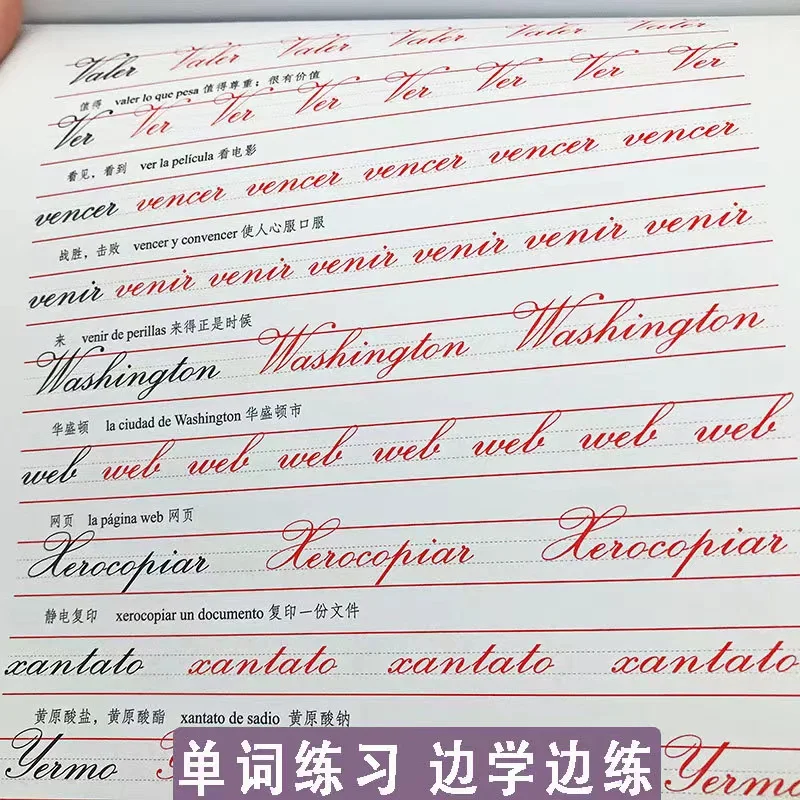 Valer Valer Valer Valer Valer Valer
值得 valer lo que pesa 值得尊重；很有价值
Ver Ver Ver Ver Ver Ver Ver Ver
看见，看到 ver la película 看电影
vencer vencer vencer vencer vencer vencer
战胜，击败 vencer y convencer 使人心服口服
venir venir venir venir venir venir venir
来 venir de perillas 来得正是时候
Washington Washington Washington
华盛顿 la ciudad de Washington 华盛顿市
web web web web web web web
网页 la página web 网页
Xerocopiar Xerocopiar Xerocopiar
静电复印 xerocopiar un documento 复印一份文件
xantato xantato xantato xantato
黄原酸盐，黄原酸酯 xantato de sadio 黄原酸钠
Yermo Yermo
单词练习 边学边练